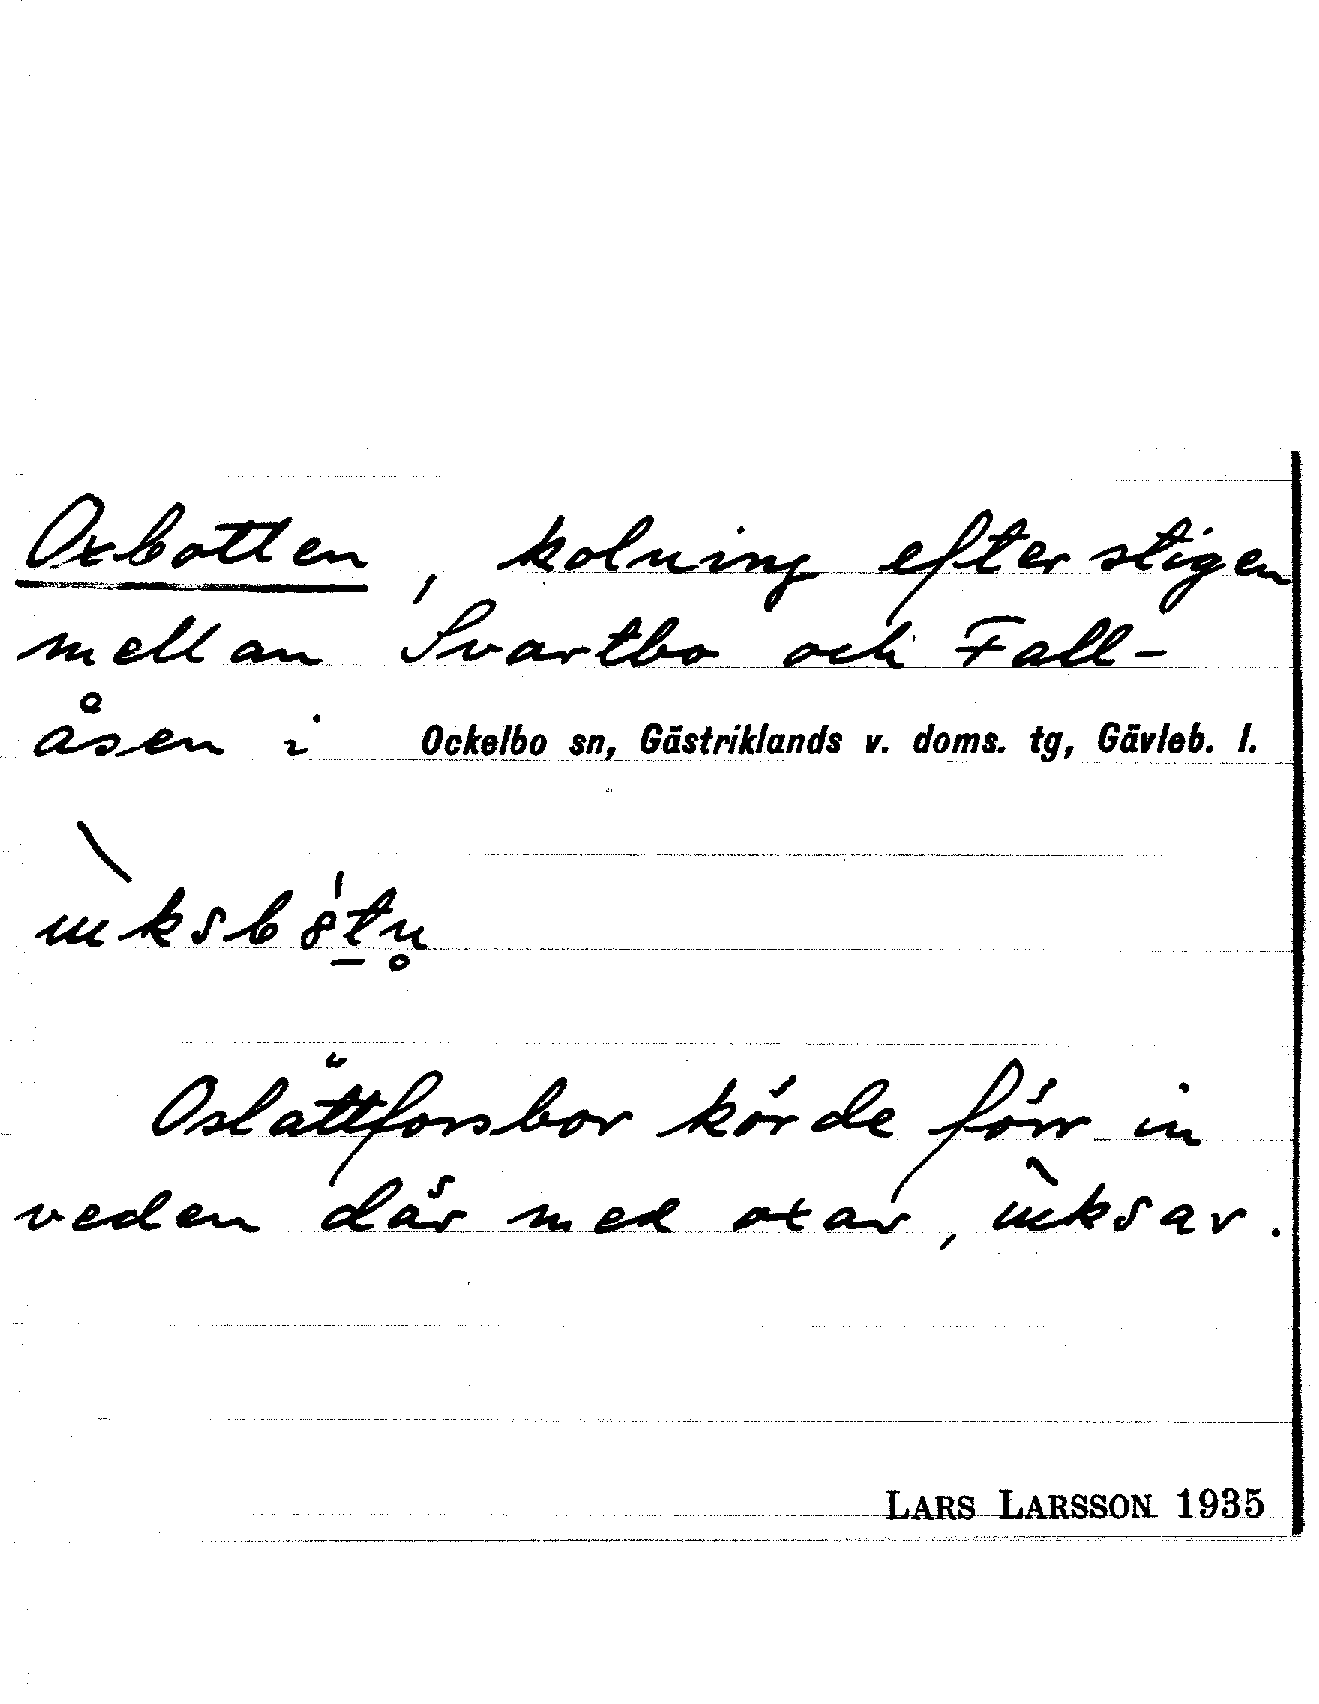 Oxbotten, kolning efter stigen
mellan Svartbo och Fall-
åsen i Ockelbo sn, Gästriklands v. doms. tg, Gävleb. l.
Oslättforsbor körde förr in
veden där med oxar,
LARS LARSSON 1935